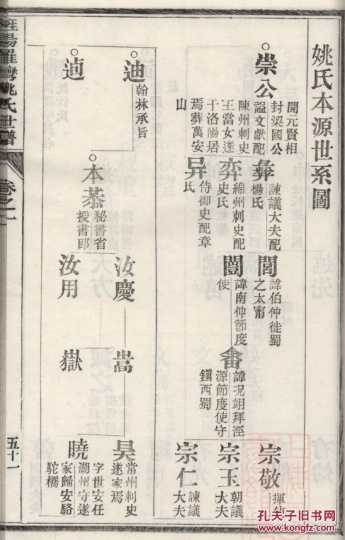 姚氏本源世系圖
崇公
開元賢相
封梁國公
謚文獻配
陳州刺史
王當女遂
于洛陽居
焉葬萬安
山
彝
諫議大夫配
楊氏
弈
綿州刺史配
史氏
异
侍御史配章
氏
閎
諱伯仲徙蜀
之太甯
闓
諱南仲節度
使
畬
諱况翊拜涇
源節度使守
鎮西蜀
宗敬
宗玉
朝議
大夫
宗仁
諫議
大夫
迪
翰林承旨
逌
本恭
秘書省
授書郎
汝慶
汝用
嵩
嶽
昊
常州刺史
遂家焉
曉
字世安任
湖州守遂
家歸安駱
駝橋
姚氏世譜
卷之一
五十一
孔夫子旧书网